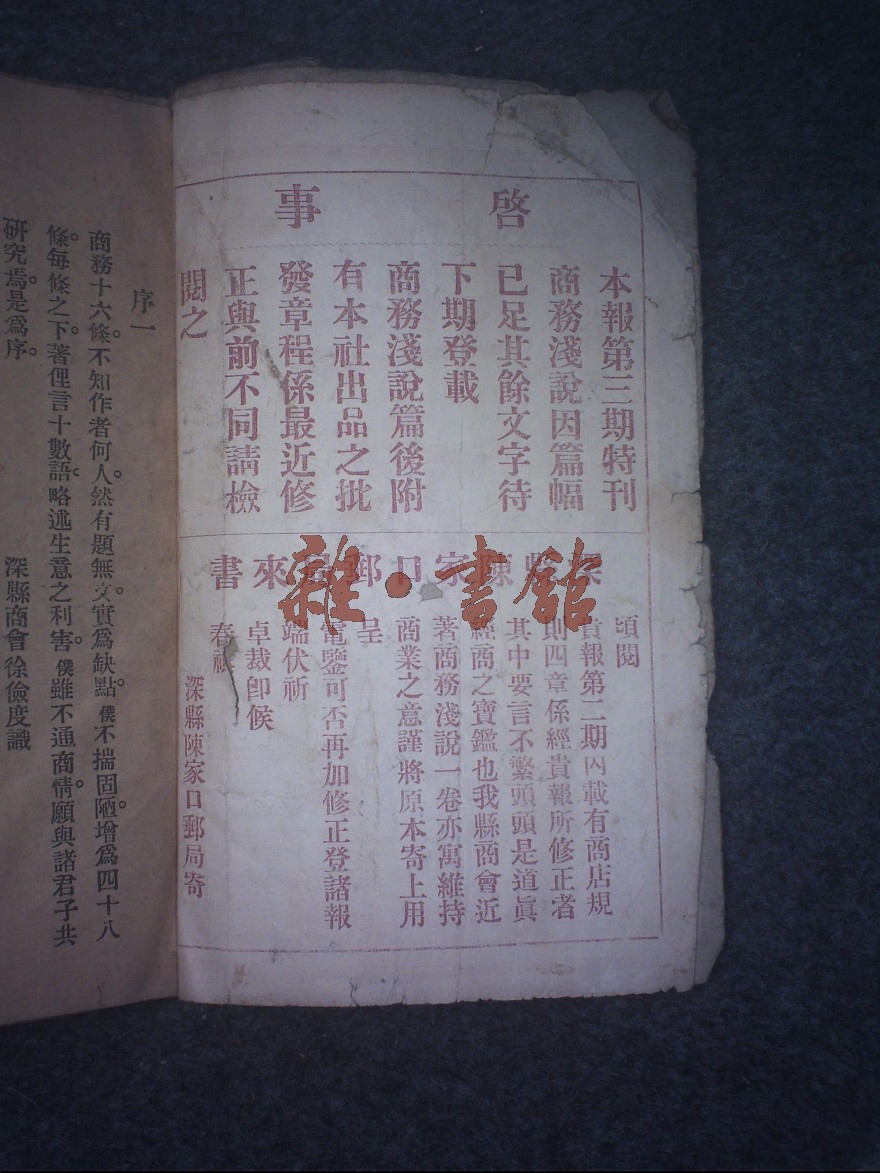 啓事
本報第三期特刊
商務淺說因篇幅
已足其餘文字待
下期登載
商務淺說篇後附
有本社出品之批
發章程係最近修
正與前不同請檢
閱之
深縣陳家口郵局來書
頃閱
貴報第二期內載有商店規
則四章係經貴報所修正者
其中要言不繁頭頭是道眞
經商之寶鑑也我縣商會近
著商務淺說一卷亦寓維持
商業之意謹將原本寄上用
呈
電鑒可否再加修正登諸報
端伏祈
卓裁卽候
春祺
深縣陳家口郵局寄
雜·書館
序一
商務十六條。不知作者何人。然有題無文。實爲缺點。僕不揣固陋。增爲四十八
條。每條之下。著俚言十數語。略述生意之利害。僕雖不通商情。願與諸君子共
研究焉。是爲序。
深縣商會徐儉度識